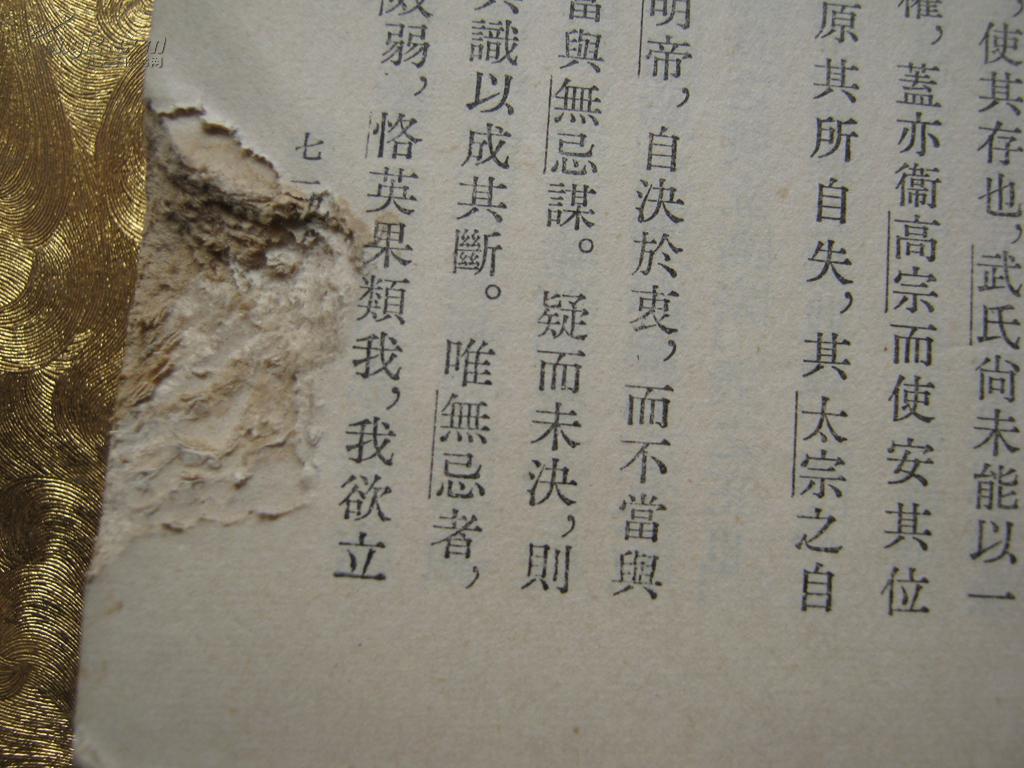 ，使其存也，武氏尙未能以一
權，蓋亦衞高宗而使安其位
原其所自失，其太宗之自
明帝，自決於衷，而不當與
當與無忌謀。疑而未決，則
識以成其斷。唯無忌者，
弱，恪英果類我，我欲立
七一